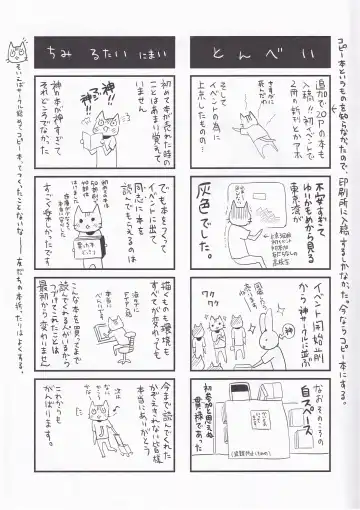 コピー本というものを知らなかったので印刷所に入稿するしかなかった。今ならコピー本にする。
とんべい
追加で20Pの本も
入稿!!初イベントで
2冊の新刊とかアホ
さすがに
死んだわ
そして
イベントの為に
上京したものの…
不安すぎて
ゆりかもめから見る
東京湾が
灰色でした。
イベント開始直前
から神サークルに並ぶ
神
ワクワク
ワクワク
なおそのころの
自スペース
初参加と思えぬ
貫禄であった
ちみ るたい にまい
初めて本が売れた時の
ことはあまり覚えて
いません
神…
神の本が神すぎて
それどころでなかった
でも本をつくって
イベントに出て、
同志に本を
読んでもらえるのは
すごく楽しかったです
描くものも環境も
すべてが変わっても
こんな本を買ってまで
読んでくれる人がいるから
フォッてくることは
最初から変わりません
今まで読んでくれた
かぞえきれない皆様
本当にありがとう
これからも
がんばります。
そういえばサークル始めてコピー本ってつくったことないな——友だちの本折ったりはよくする。